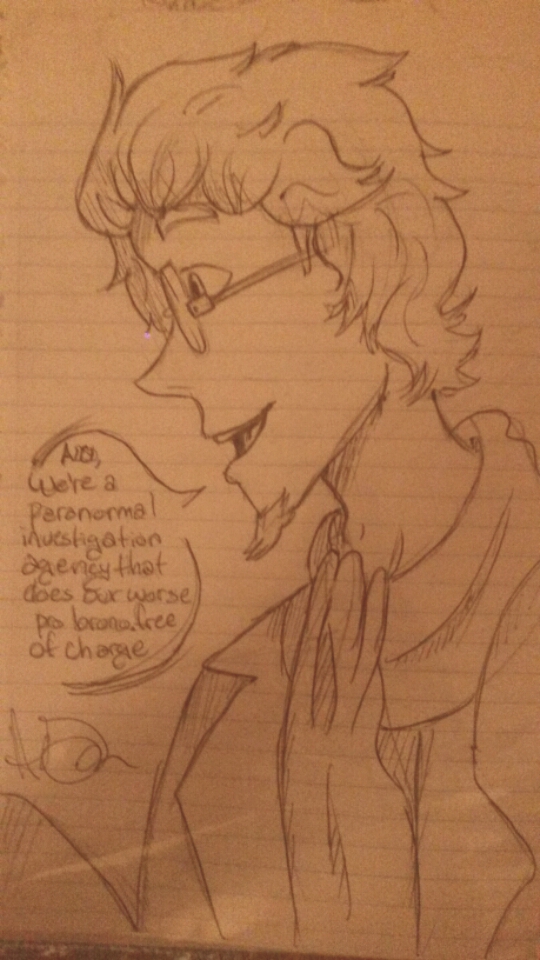 We're a
paranormal
investigation
agency that
does our worse
pro brono.free
of charge